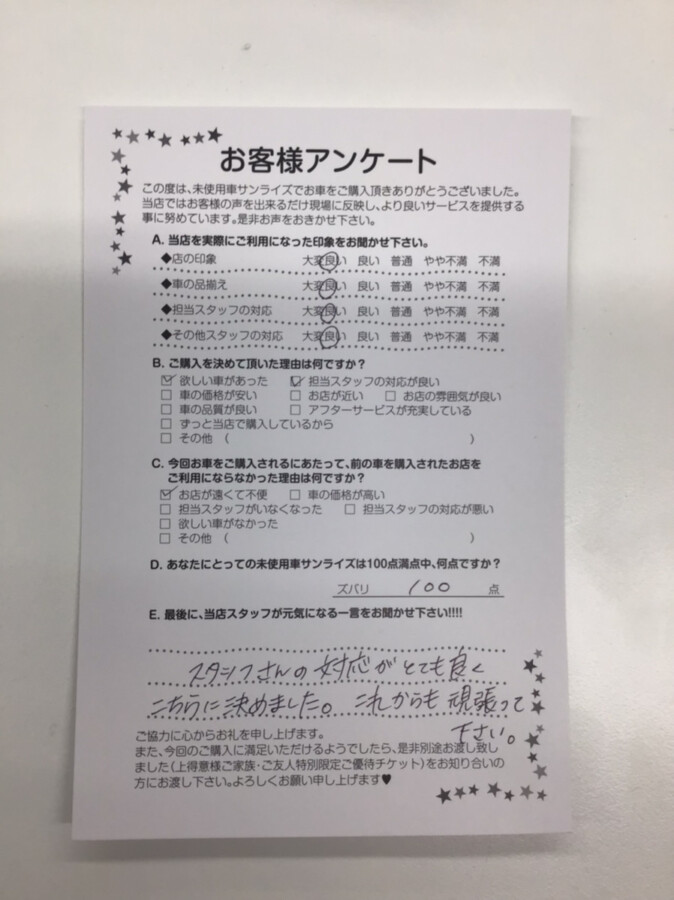 お客様アンケート
この度は、未使用車サンライズでお車をご購入頂きありがとうございました。
当店ではお客様の声を出来るだけ現場に反映し、より良いサービスを提供する
事に努めています。是非お声をおきかせ下さい。
A. 当店を実際にご利用になった印象をお聞かせ下さい。
◆店の印象 大変良い 良い 普通 やや不満 不満
◆車の品揃え 大変良い 良い 普通 やや不満 不満
◆担当スタッフの対応 大変良い 良い 普通 やや不満 不満
◆その他スタッフの対応 大変良い 良い 普通 やや不満 不満
B. ご購入を決めて頂いた理由は何ですか?
☑ 欲しい車があった ☑ 担当スタッフの対応が良い
□ 車の価格が安い □ お店が近い □ お店の雰囲気が良い
□ 車の品質が良い □ アフターサービスが充実している
□ ずっと当店で購入しているから
□ その他 ( )
C. 今回お車をご購入されるにあたって、前の車を購入されたお店を
ご利用にならなかった理由は何ですか?
☑ お店が遠くて不便 □ 車の価格が高い
□ 担当スタッフがいなくなった □ 担当スタッフの対応が悪い
□ 欲しい車がなかった
□ その他 ( )
D. あなたにとっての未使用車サンライズは100点満点中、何点ですか?
ズバリ 100 点
E. 最後に、当店スタッフが元気になる一言をお聞かせ下さい!!!!
スタッフさんの対応がとても良く
こちらに決めました。これからも頑張って
下さい。
ご協力に心からお礼を申し上げます。
また、今回のご購入に満足いただけるようでしたら、是非別途お渡し致し
ました(上得意様ご家族・ご友人特別限定ご優待チケット)をお知り合いの
方にお渡し下さい。よろしくお願い申し上げます♥